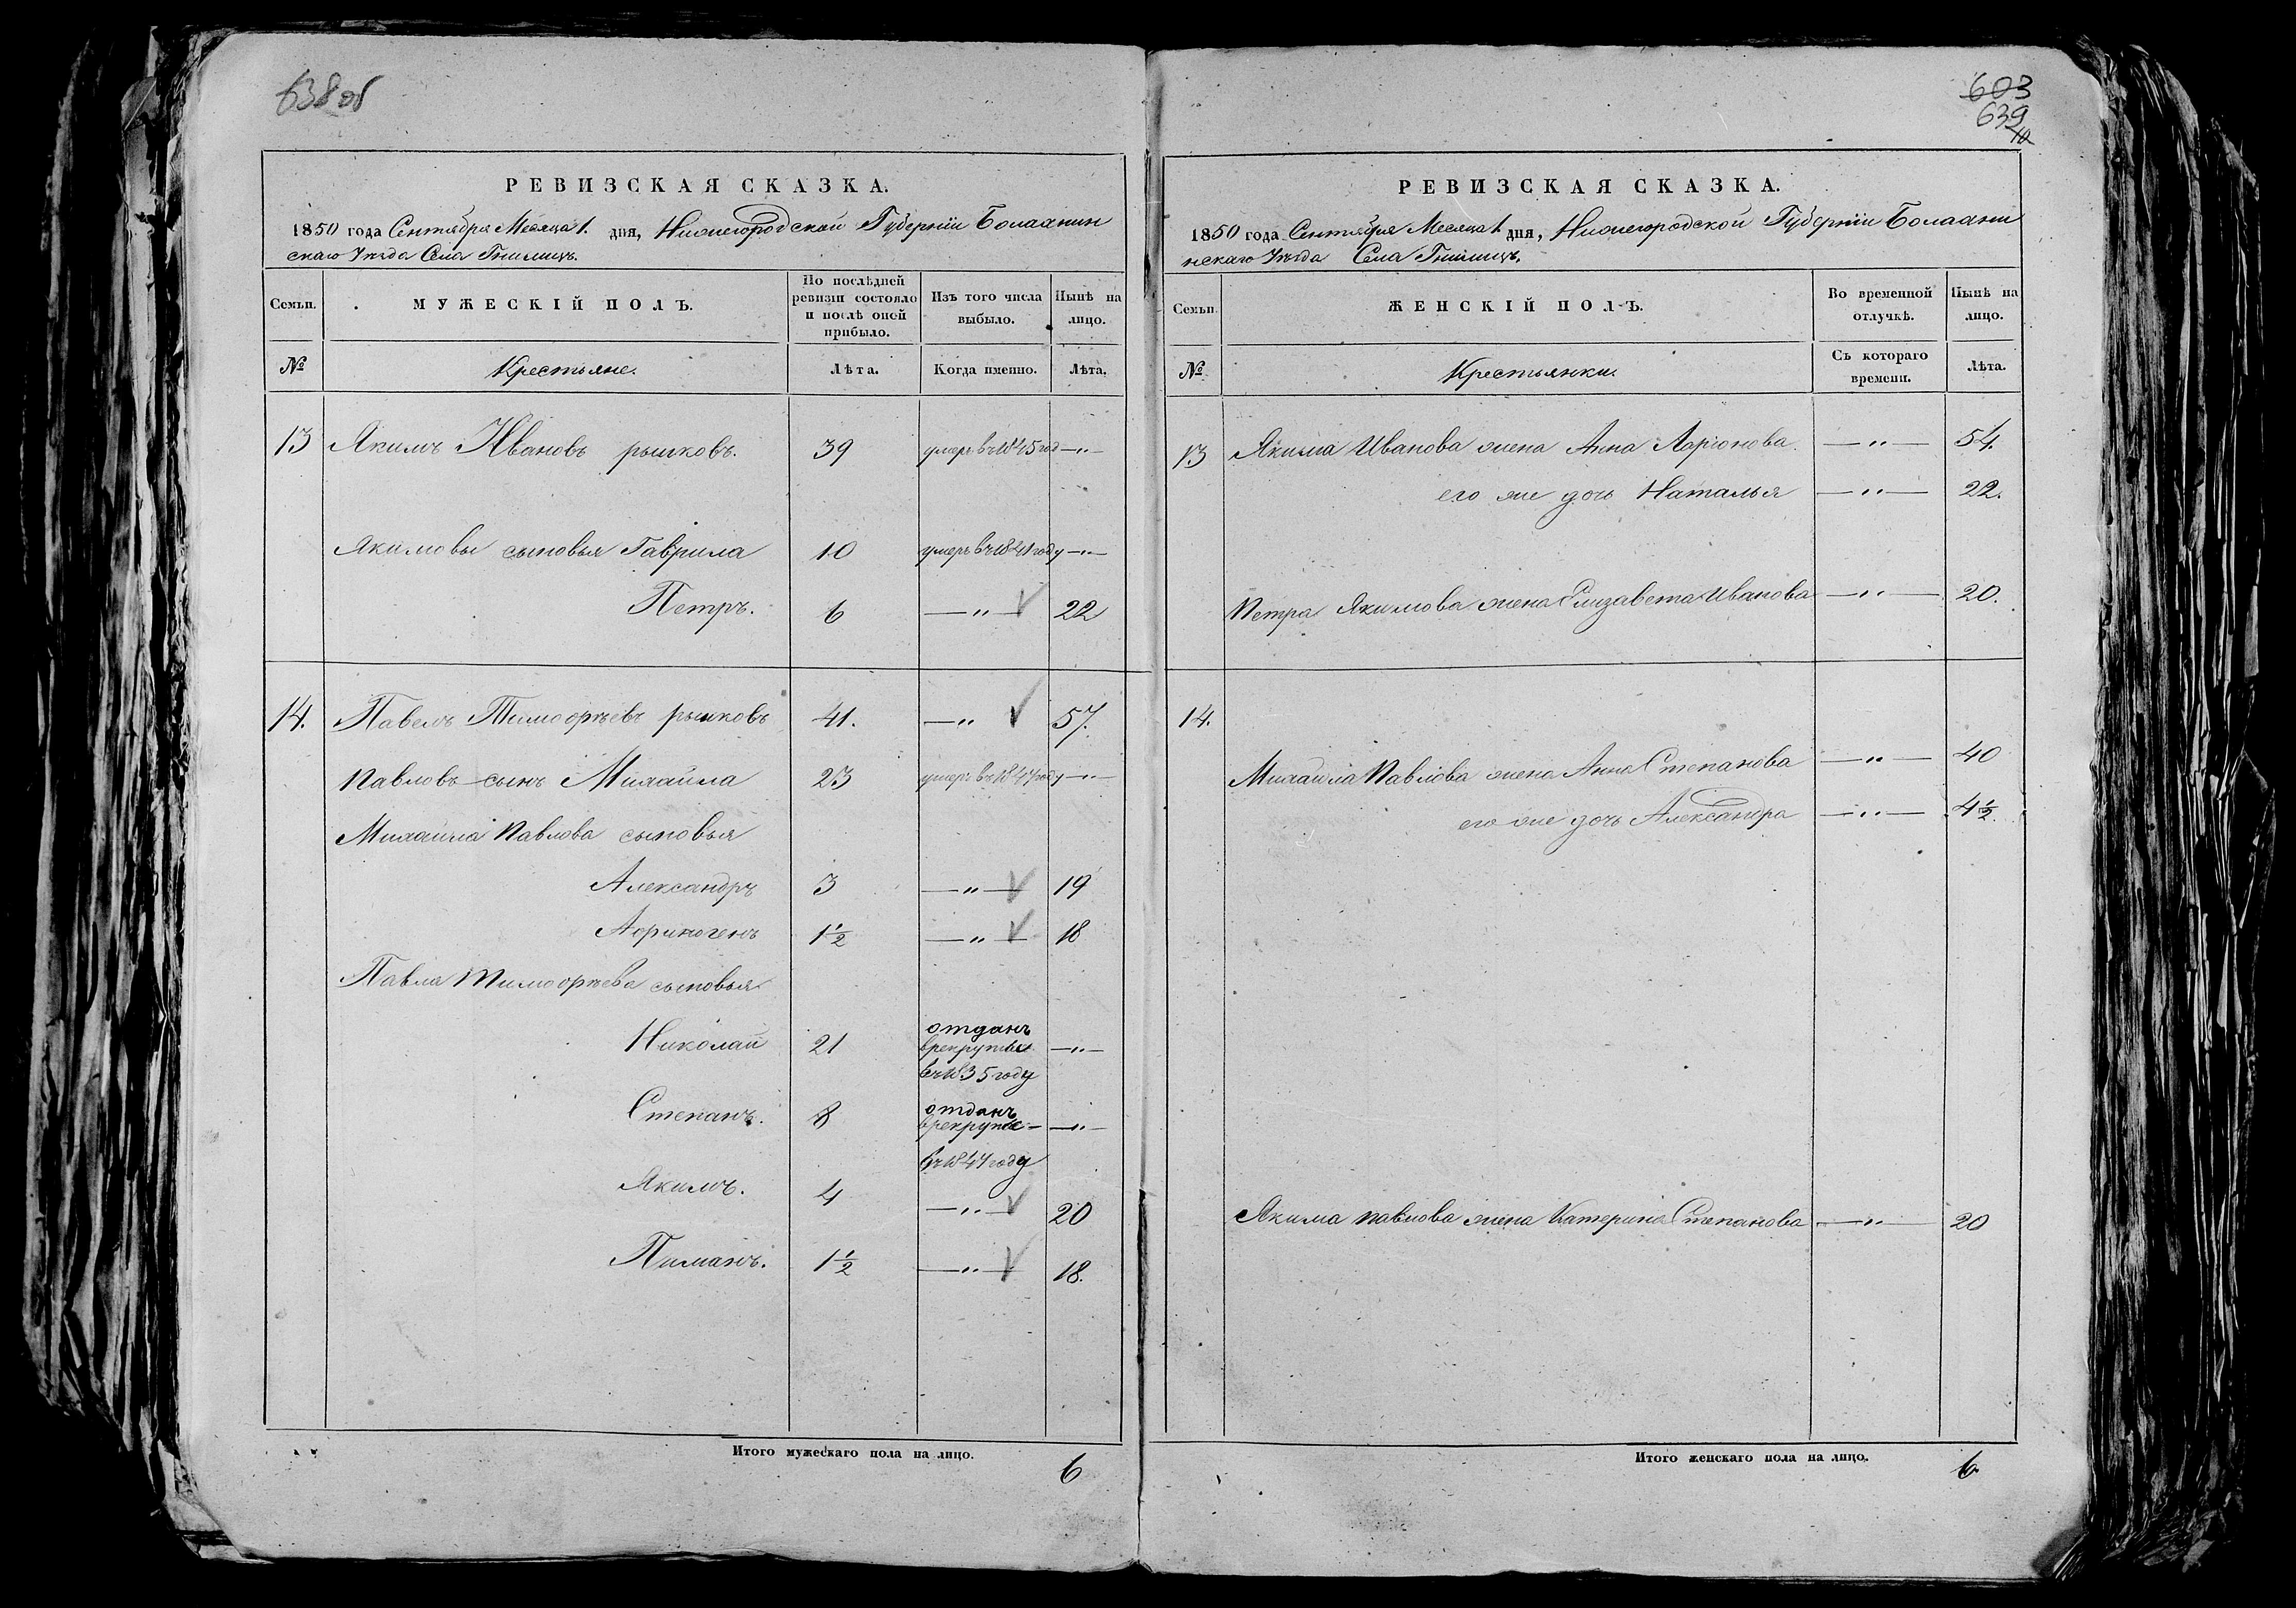 638 об
РЕВИЗСКАЯ СКАЗКА.
1850 года Сентября Месяца 1. дня, Нижегородской Губерніи Балахнин
скаго Уѣзда Села Гнилицъ.
Семьи. МУЖЕСКІЙ ПОЛЪ. По послѣдней ревизіи состояло и послѣ оной прибыло. Изъ того числа выбыло. Нынѣ на лицо.
№ Крестьяне. Лѣта. Когда именно. Лѣта.
13 Якимъ Ивановъ рыжковъ. 39 умеръ въ 1845 год —"—
Якимовы сыновья Гаврила 10 умеръ въ 1841 году —"—
Петръ. 6 —"— 22
14. Павелъ Тимофѣевъ рыжковъ 41. —"— 57.
Павловъ сынъ Михайла 23 умеръ въ 1847 году —"—
Михайла Павлова сыновья
Александръ 3 —"— 19
Африногенъ 1½ —"— 18
Павла Тимофѣева сыновья
Николай 21 отданъ
врекруты —"—
въ 1835 году
Степанъ. 8 отданъ
врекруты —"—
въ 1847 году
Якимъ. 4 —"— 20
Пиманъ. 1½ —"— 18.
Итого мужескаго пола на лицо. 6
603
639
РЕВИЗСКАЯ СКАЗКА.
1850 года Сентября Месяца 1 дня, Нижегородской Губерніи Балахни
нскаго Уѣзда Села Гнилицъ.
Семьи. ЖЕНСКІЙ ПОЛЪ. Во временной отлучкѣ. Нынѣ на лицо.
№ Крестьянки. Съ котораго времени. Лѣта.
13 Якима Иванова жена Анна Ларионова. —"— 54.
его же дочь Наталья —"— 22.
Петра Якимова жена Елизавета Иванова —"— 20.
14.
Михайла Павлова жена Анна Степанова —"— 40
его же дочь Александра —"— 4½.
Якима павлова жена Катерина Степанова —"— 20
Итого женскаго пола на лицо. 6